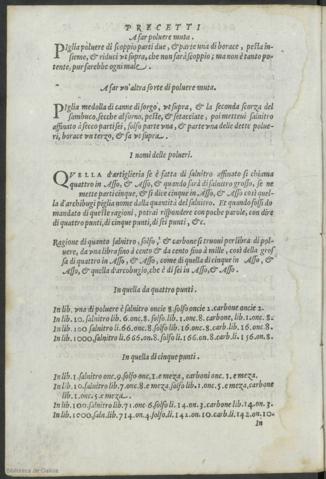 PRECETTI
A far poluere muta.
Piglia poluere di scoppio parti due, & parte una di borace, pesta in-
sieme, & riduci ut supra, che non farà scoppio; ma non è tanto po-
tente, pur farebbe ogni male.
A far un'altra sorte di poluere muta.
Piglia medolla di canne di sorgo, ut supra, & la seconda scorza del
sambuco, secche al forno, peste, & setacciate, poi metteui salnitro
affinato à secco parti sei, solfo parte una, & parte una delle dette polue-
ri, borace un terzo, & fa ut supra.
I nomi delle polueri.
QVELLA d'artiglieria se è fatta di salnitro affinato si chiama
quattro in Asso, & Asso, & quando sarà di salnitro grosso, se ne
mette parti cinque, & si dice cinque in Asso, & Asso così quel-
la d'archibugi piglia nome dalla quantità del salnitro. Et quando fosse di-
mandato di queste ragioni, potrai rispondere con poche parole, con dire
di quattro punti, di cinque punti, di sei punti, &c.
Ragione di quanto salnitro, solfo, & carbone si troui per libra di pol-
uere, da una libra fino à cento & da cento fino à mille, così della gros
sa di quattro in Asso, & Asso, come di quella di cinque in Asso, &
Asso, & quella d'arcobugio, che è di sei in Asso, & Asso.
In quella da quattro punti.
In lib. una di poluere è salnitro oncie 8. solfo oncie 2. carbone oncie 2.
In lib. 10. salnitro lib. 6. onc. 8. solfo. lib. 1. onc. 8. carbone, lib. 1. onc. 8.
In lib. 100 salnitro li. 66. onc. 8. solfo lib. 16. onc. 8. carb. lib. 16. onc. 8.
In lib. 1000. salnitro li. 666. on. 8. solfo li. 166. on. 8. carb. li. 156. on. 8.
In quella di cinque punti.
In lib. 1. salnitro onc. 9. solfo onc. 1. e meza, carboni onc. 1. e meza.
In li. 10. salnitro lib. 7. onc. 8. e meza, solfo lib. 1. onc. 5. e meza, carbone
lib. 1. onc. 5. e meza.
In lib. 100. salnitro lib. 71. onc. 6. solfo li. 14. on. 3. carbone lib. 14. on. 3.
In lib. 1000. saln. lib. 714. on. 4. solfo li. 142. on. 10. carb. li. 142. on. 10.
In
Biblioteca de Galicia